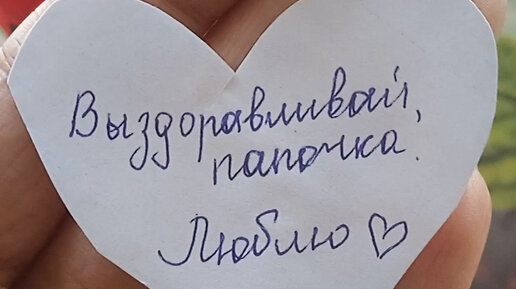 Выздоравливай,
папочка.
Люблю ♡